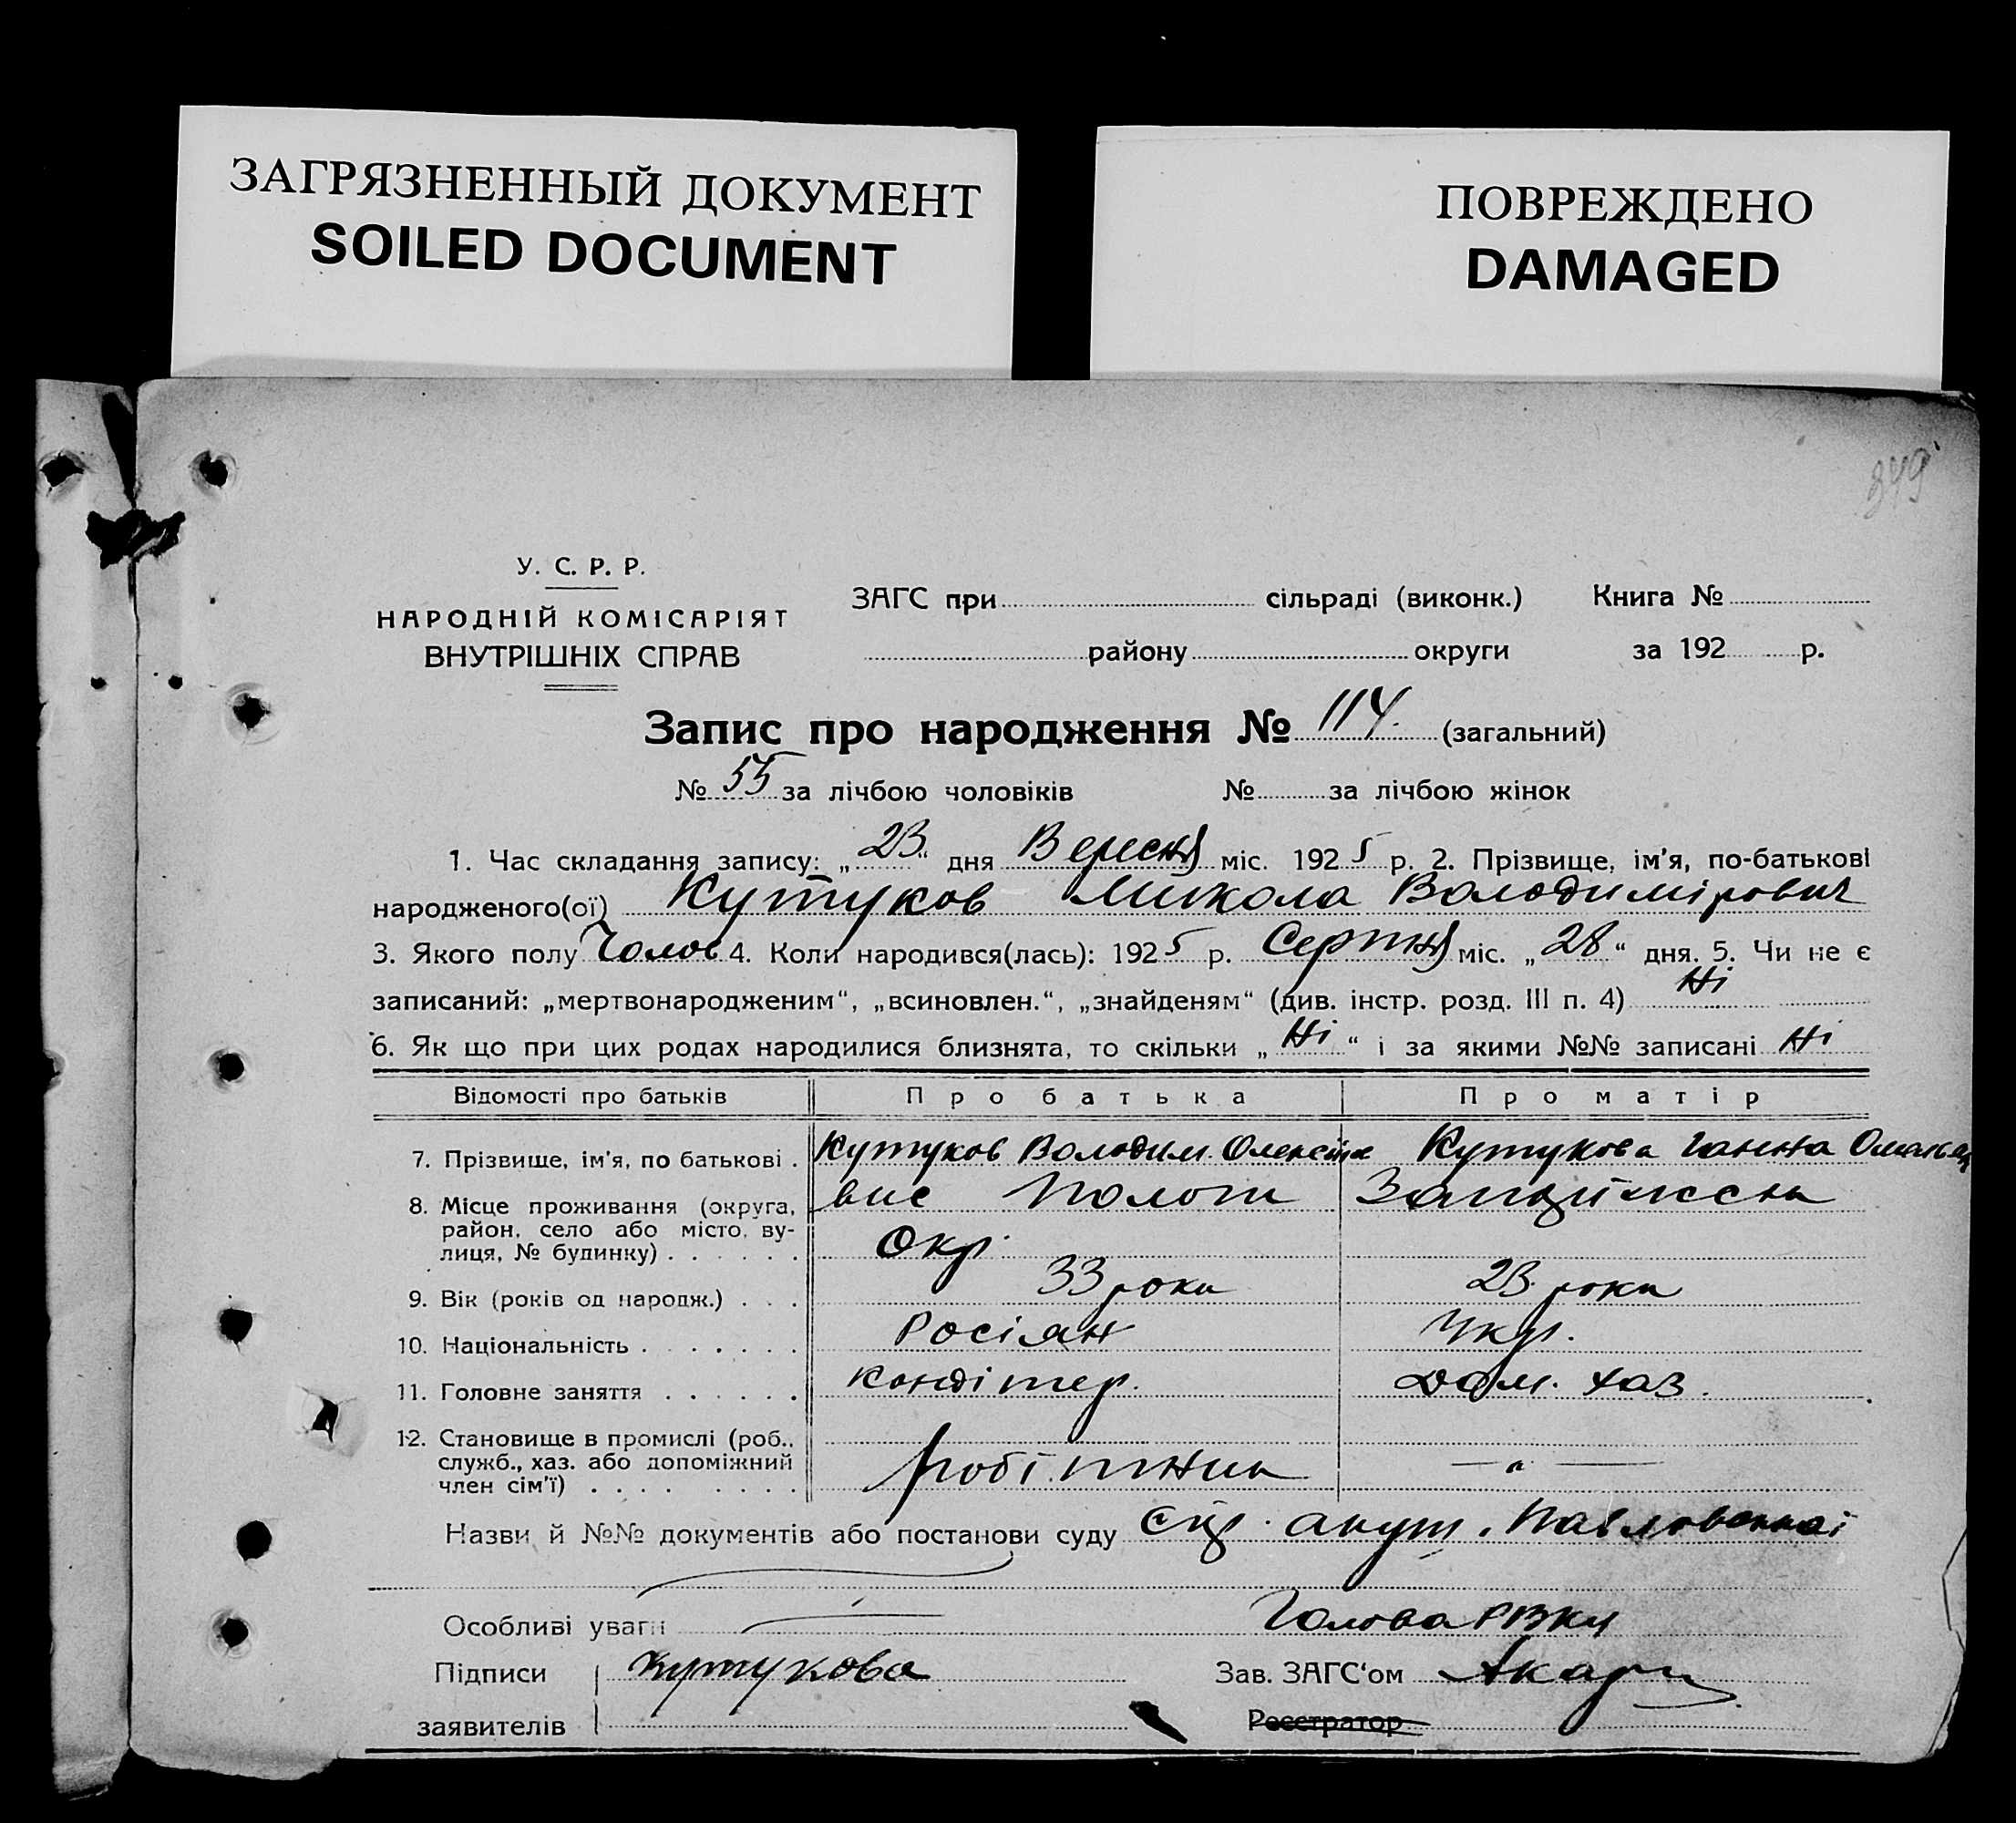 ЗАГРЯЗНЕННЫЙ ДОКУМЕНТ
SOILED DOCUMENT
ПОВРЕЖДЕНО
DAMAGED
349
У. С. Р. Р.
НАРОДНІЙ КОМІСАРІЯТ
ВНУТРІШНІХ СПРАВ
ЗАГС при сільраді (виконк.) Книга №
району округи за 192 р.
Запис про народження № 114. (загальний)
№ 55 за лічбою чоловіків № за лічбою жінок
1. Час складання запису: „23“ дня Вересня міс. 1925 р. 2. Прізвище, ім'я, по-батькові
народженого(ої) Кутуков Микола Володимірович
3. Якого полу Чолов 4. Коли народився(лась): 1925 р. Серпня міс. „28“ дня. 5. Чи не є
записаний: „мертвонародженим“, „всиновлен.“, „знайденям“ (див. інстр. розд. III п. 4) Ні
6. Як що при цих родах народилися близнята, то скільки „Ні“ і за якими №№ записані Ні
Відомості про батьків Про батька Про матір
7. Прізвище, ім'я, по батькові . Кутуков Володим. Кутукова Ганна
8. Місце проживання (округа, район, село або місто, вулиця, № будинку) . . . . . . Пологи Окр.
9. Вік (років од народж.) . . . 33 роки 23 роки
10. Національність . . . . . . . Росіян Укр.
11. Головне заняття . . . . . . Кондітер. Дом. хаз.
12. Становище в промислі (роб., служб., хаз. або допоміжний член сім'ї) . . . . . . . . робітник — „ —
Назви й №№ документів або постанови суду акуш.
Особливі уваги Голова РВК
Підписи Кутукова Зав. ЗАГС'ом
заявителів Реєстратор